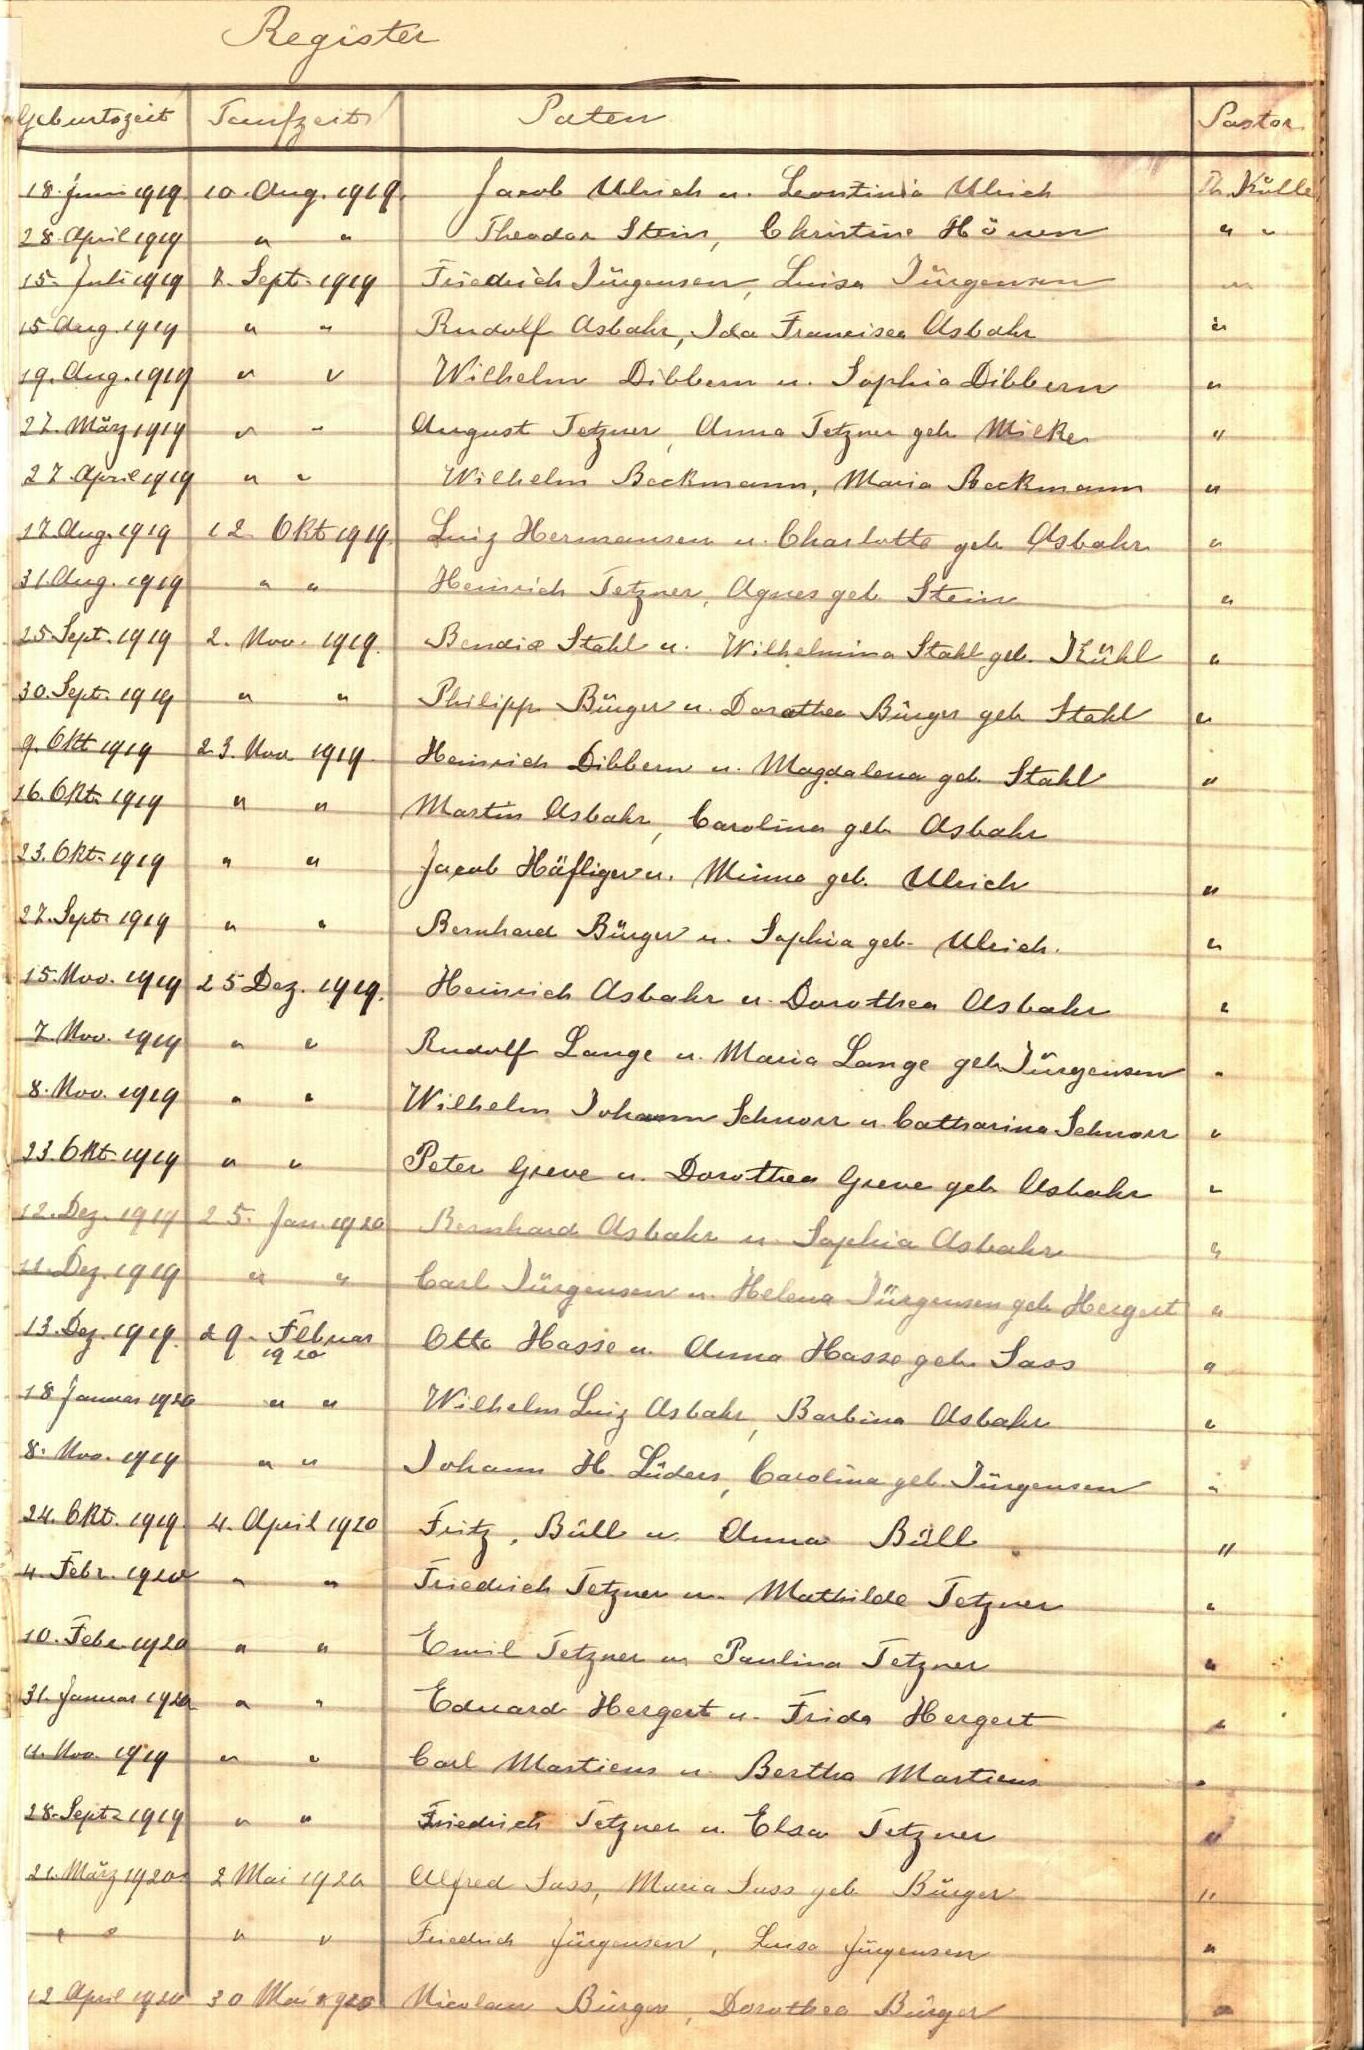 Register
Geburtszeit Taufzeit Paten Pastor
18. Juni 1919. 10. Aug. 1919. Jacob Ulrich u. Leontinia Ulrich Th. Kölle
28. April 1919 " " Theodor Stein, Christine Hönen " "
15. Juli 1919 7. Sept. 1919 Friedrich Jürgensen, Luisa Jürgensen "
15 Aug. 1919 " " Rudolf Asbahr, Ida Francisca Asbahr "
19. Aug. 1919 " " Wilhelm Dibbern u. Sophia Dibbern "
27. März 1919 " " August Tetzner, Anna Tetzner geb. Milke "
27. April 1919 " " Wilhelm Beckmann, Maria Beckmann "
17. Aug. 1919 12. Okt 1919. Luiz Hermansen u. Charlotte geb. Asbahr "
31. Aug. 1919 " " Heinrich Tetzner, Agnes geb. Stein "
25. Sept. 1919 2. Nov. 1919. Bendix Stahl u. Wilhelmina Stahl geb. Kühl "
30. Sept. 1919 " " Philipp Bürger u. Dorothea Bürger geb. Stahl "
9. Okt 1919 23. Nov. 1919. Heinrich Dibbern u. Magdalena geb. Stahl "
16. Okt. 1919 " " Martin Asbahr, Carolina geb. Asbahr
23. Okt. 1919 " " Jacob Häfliger u. Minna geb. Ulrich "
27. Sept. 1919 " " Bernhard Bürger u. Sophia geb. Ulrich. "
15. Nov. 1919 25 Dez. 1919. Heinrich Asbahr u. Dorothea Asbahr "
7. Nov. 1919 " " Rudolf Lange u. Maria Lange geb. Jürgensen "
8. Nov. 1919 " " Wilhelm Johann Schnorr u. Catharina Schnorr "
23. Okt. 1919 " " Peter Greve u. Dorothea Greve geb. Asbahr "
12. Dez. 1919 25. Jan. 1920 Bernhard Asbahr u. Sophia Asbahr "
11. Dez. 1919 " " Carl Jürgensen u. Helena Jürgensen geb. Hergert "
13. Dez. 1919. 29. Februar 1920 Otto Hasse u. Anna Hasse geb. Sass "
18 Januar 1920 " " Wilhelm Luiz Asbahr, Barbina Asbahr "
8. Nov. 1919 " " Johann H. Lüders, Carolina geb. Jürgensen "
24. Okt. 1919 4. April 1920 Fritz. Büll u. Anna Büll "
4. Febr. 1920 " " Friedrich Tetzner u. Mathilde Tetzner "
10. Febr. 1920 " " Emil Tetzner u. Paulina Tetzner "
31. Januar 1920 " " Eduard Hergert u. Frida Hergert "
11. Nov. 1919 " " Carl Martiens u. Bertha Martiens "
28. Sept. 1919 " " Friedrich Tetzner u. Elsa Tetzner "
21. März 1920 2 Mai 1920 Alfred Sass, Maria Sass geb. Bürger "
" " " " Friedrich Jürgensen, Luisa Jürgensen "
12 April 1920 30 Mai 1920 Nicolaus Bürger, Dorothea Bürger "